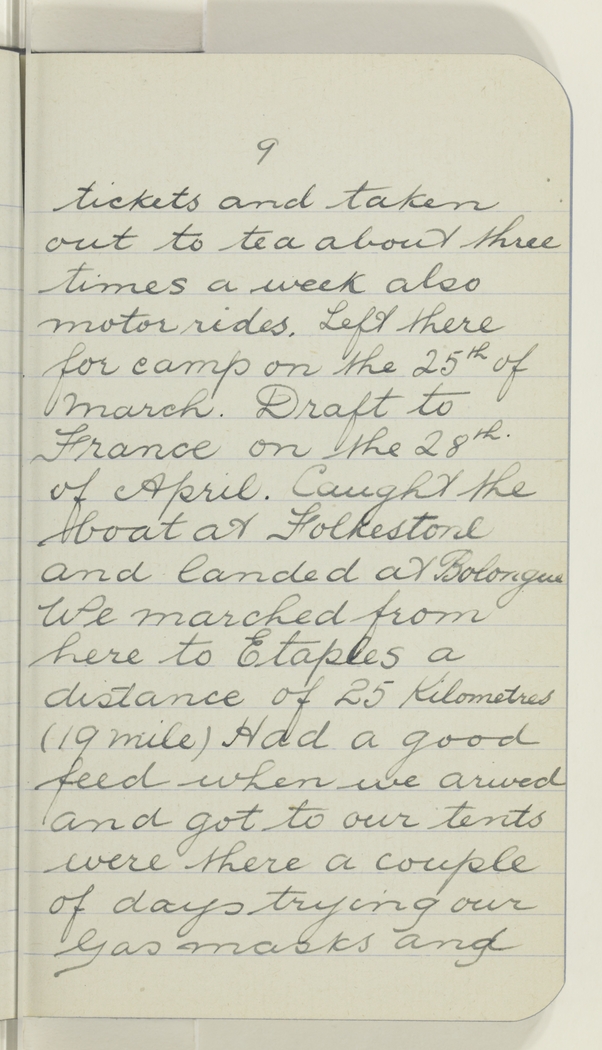 9
tickets and taken
out to tea about three
times a week also
motor rides. Left there
for camp on the 25th of
March. Draft to
France on the 28th.
of April. Caught the
boat at Folkestone
and landed at Bolongue
We marched from
here to Etaples a
distance of 25 Kilometres
(19 mile) Had a good
feed when we arived
and got to our tents
were there a couple
of days trying our
Gas masks and